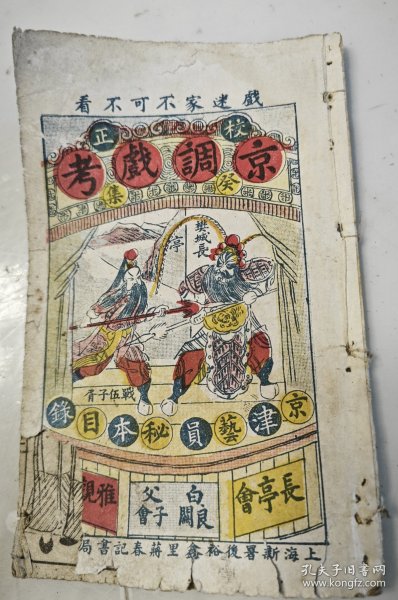 戲迷家不可不看
校正
京調戲考
癸集
樊城長亭
戰伍子胥
京津藝員秘本目錄
長亭會
白良關
父子會
雅觀
上海新署後裕鑫里蔣春記書局
孔夫子旧书网
www.kongfz.com